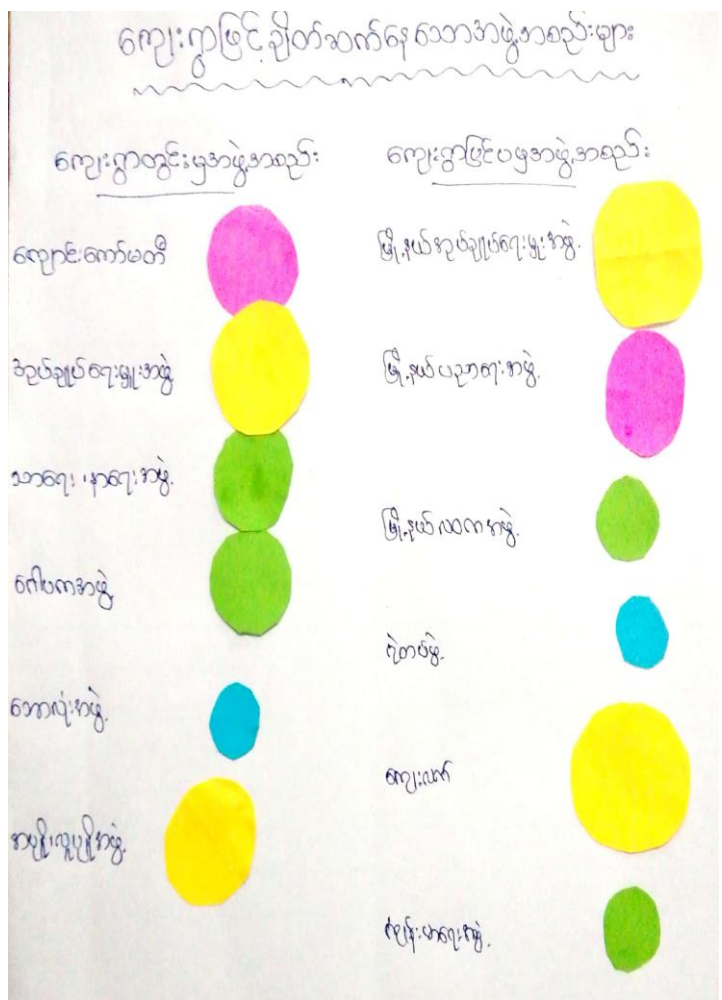 ကျေးရွာဖြင့်ချိတ်ဆက်နေသောအဖွဲ့အစည်းများ
ကျေးရွာတွင်းမှအဖွဲ့အစည်း
ကျောင်းကော်မတီ
အုပ်ချုပ်ရေးမှူးအဖွဲ့
သာရေး၊နာရေးအဖွဲ့
ဂေါပကအဖွဲ့
ဘောလုံးအဖွဲ့
အပျို၊လူပျိုအဖွဲ့
ကျေးရွာပြင်ပမှအဖွဲ့အစည်း
မြို့နယ်အုပ်ချုပ်ရေးမှူးအဖွဲ့
မြို့နယ်ပညာရေးအဖွဲ့
မြို့နယ်လဝကအဖွဲ့
ရဲတပ်ဖွဲ့
ကျေးလက်
ကျန်းမာရေးအဖွဲ့